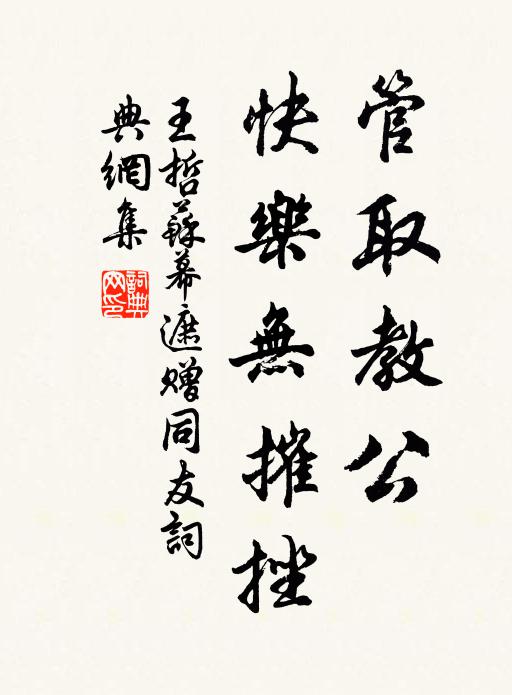 管取教公
快樂無摧挫
王哲蘇幕遮贈同友詞
典網集
詞典網印